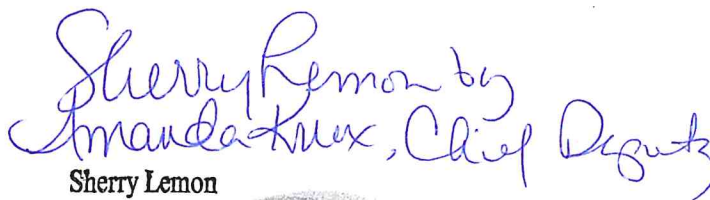 Sherry Lemon by
Amanda Knox, Chief Deputy
Sherry Lemon